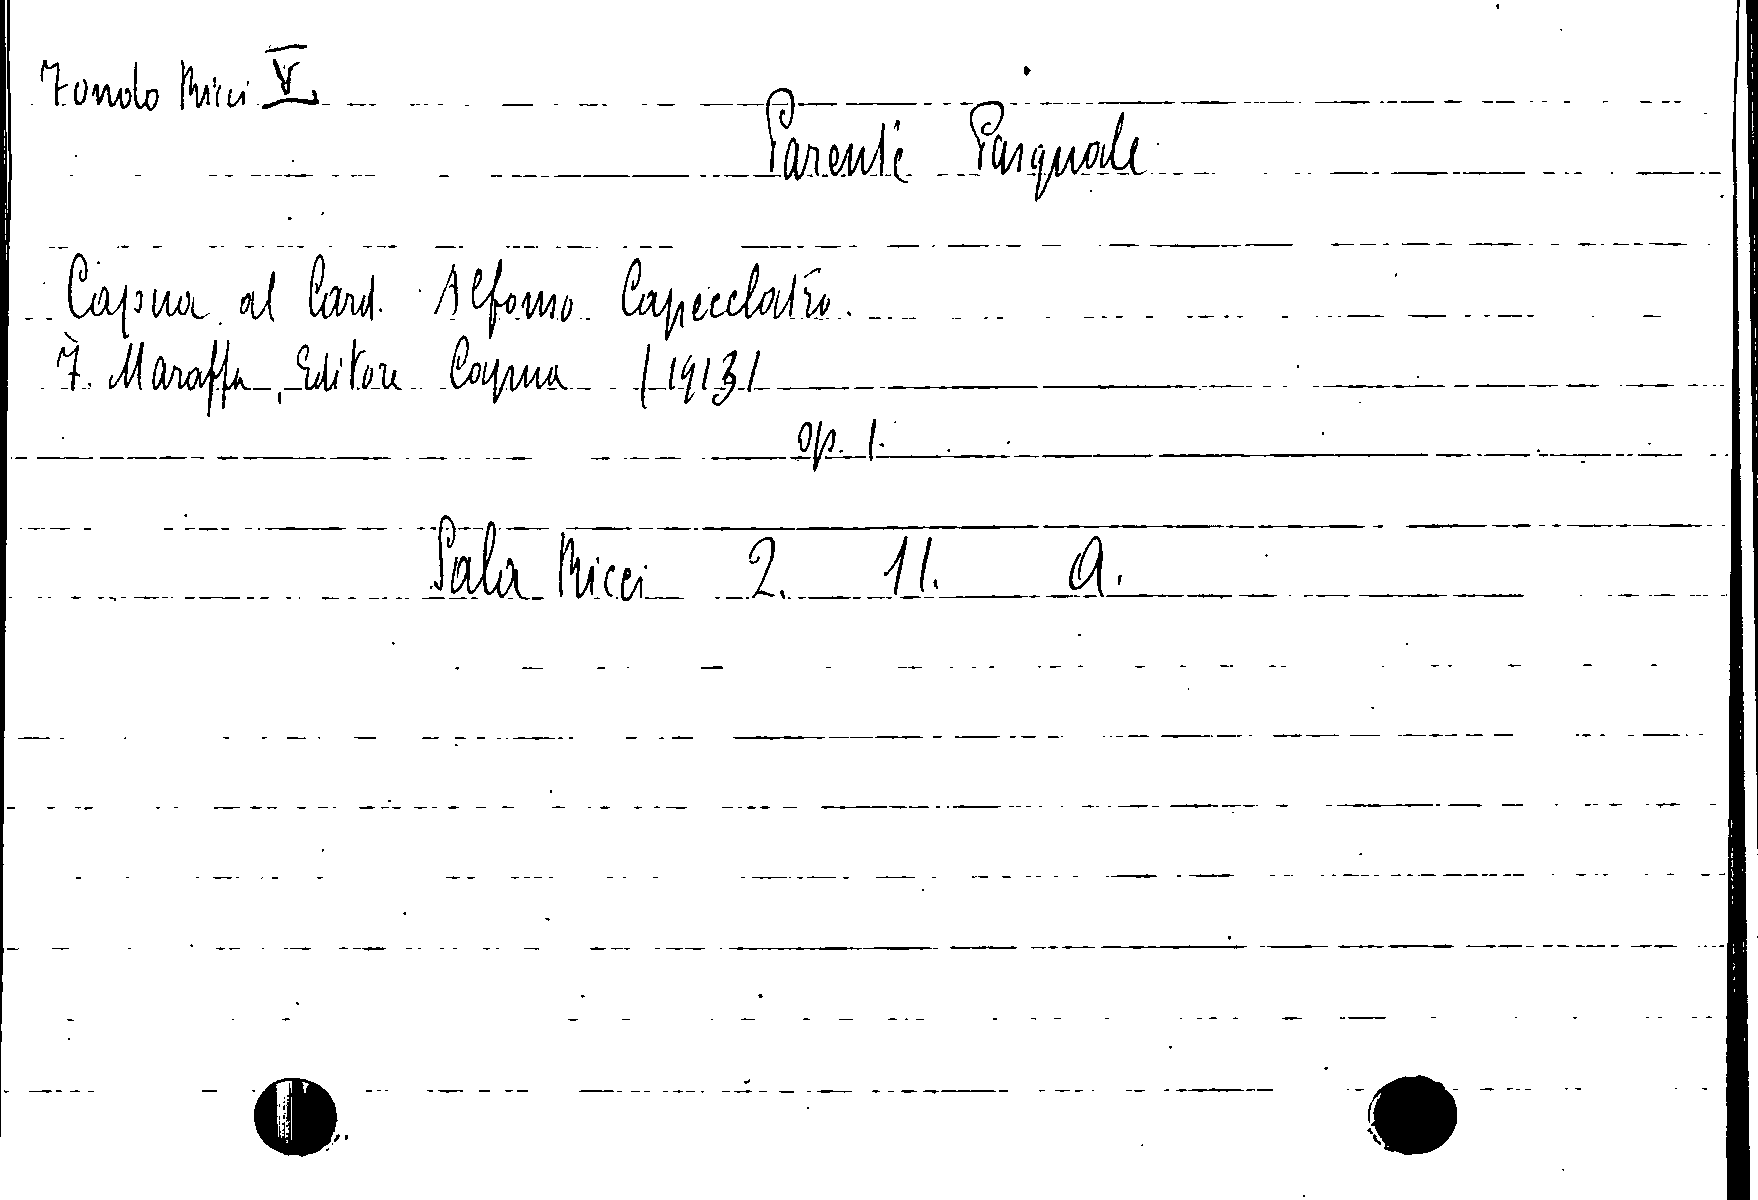 Fondo Ricci V
Parente Pasquale
Capua al Card. Alfonso Capecelatro.
F. Maraffa, Editore Capua /1913/
op. 1.
Sala Ricci 2. 11. A.